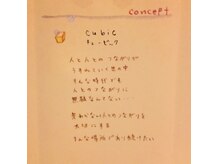 concept
Cubic
キュービック
人と人とのつながりが
うすれていく世の中
そんな時代でも
人とのつながりに
無縁なんてない…
変わらない人とのつながりを
大切にする
そんな場所であり続けたい